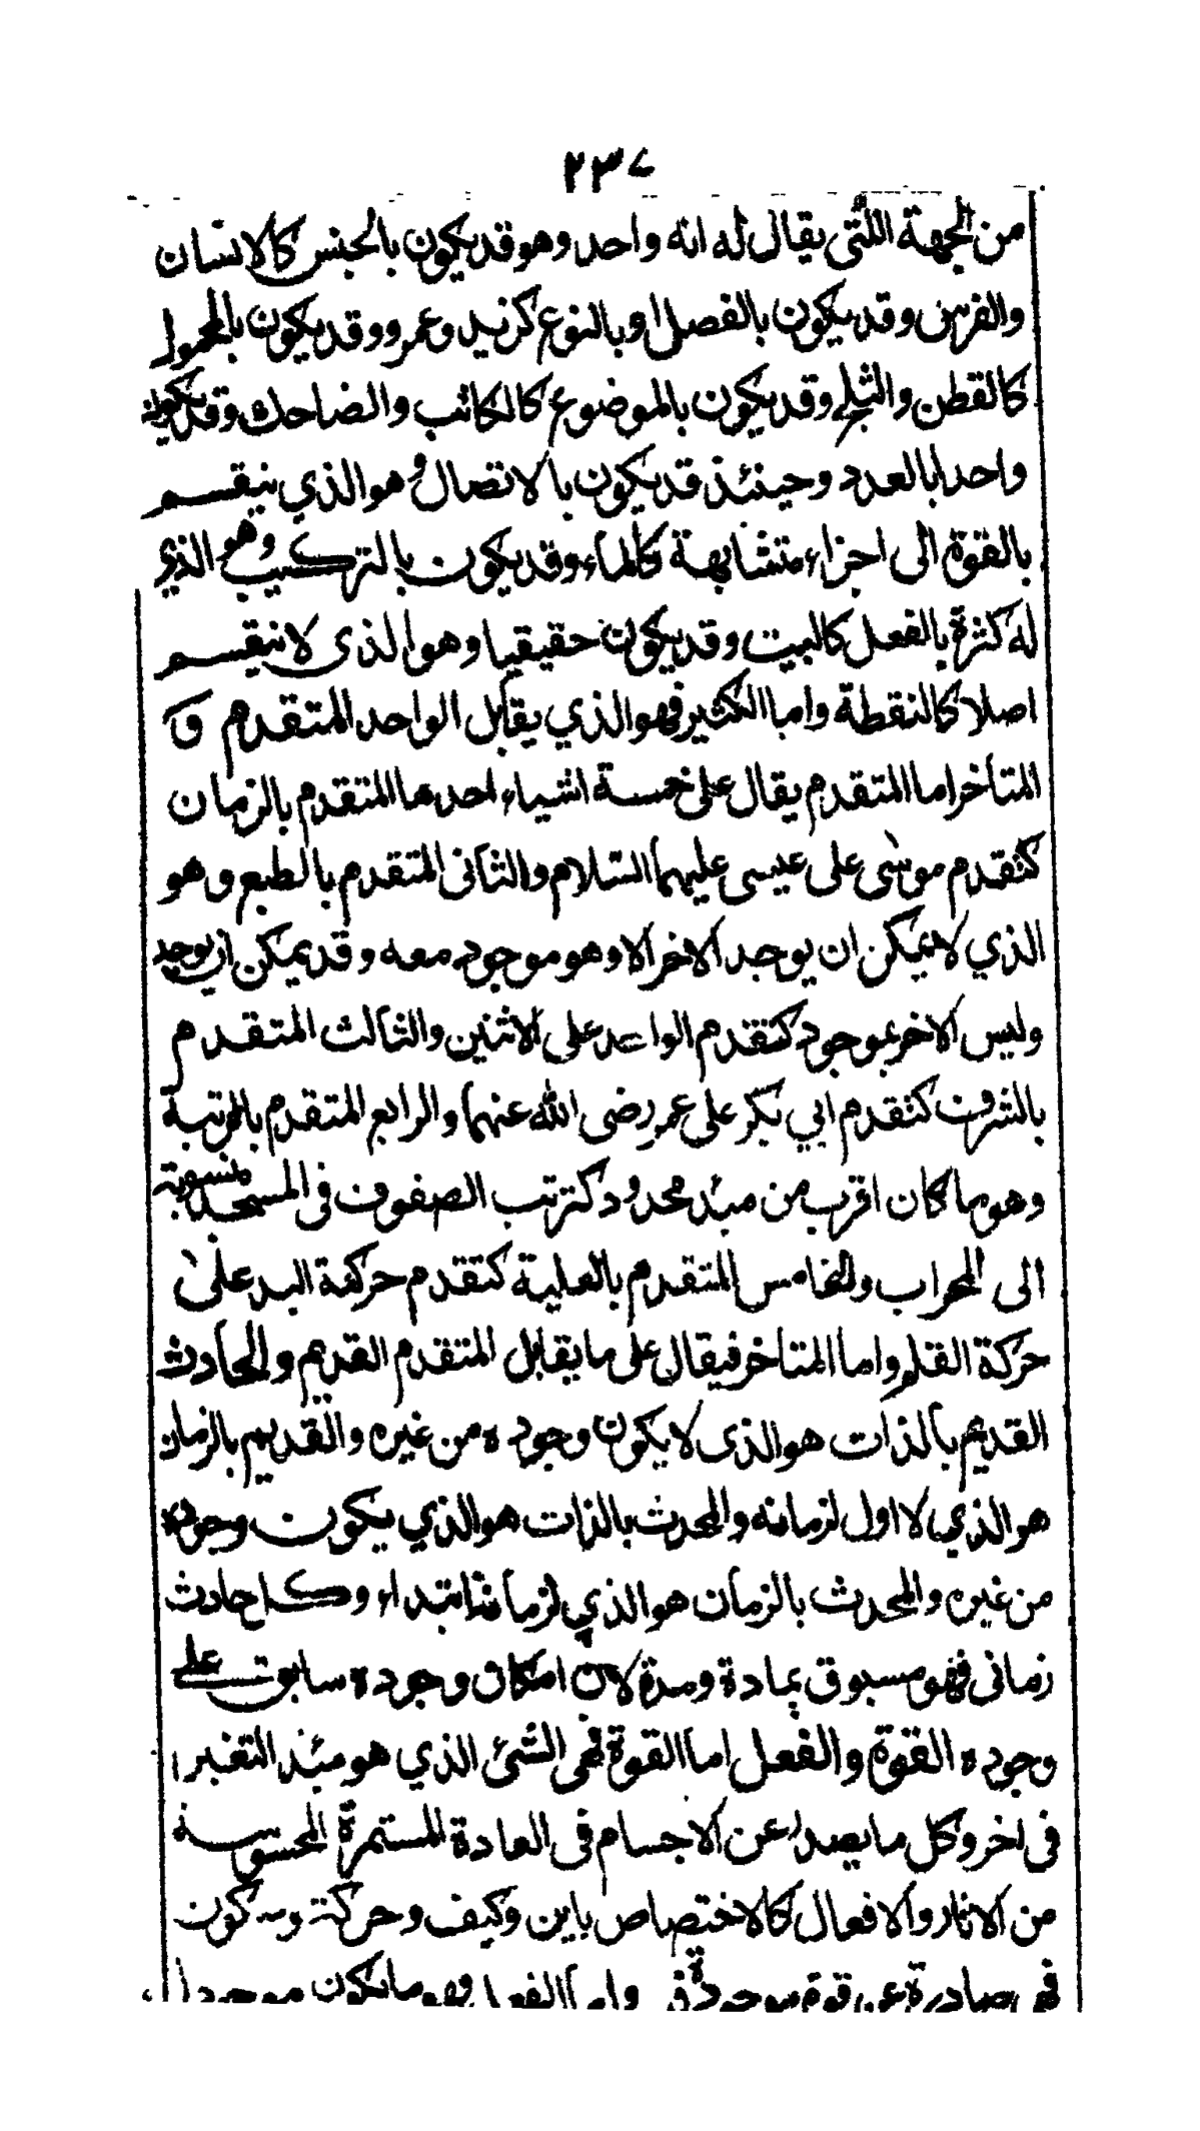 ٢٣٧
من الجهة اللتى يقال له انه واحد وهو قد يكون بالجنس كالانسان
والفرس وقد يكون بالفصل او بالنوع كزيد وعمرو وقد يكون بالمحمول
كالقطن والثلج وقد يكون بالموضوع كالكاتب والضاحك وقد يكون
واحدا بالعدد وحينئذ قد يكون بالاتصال وهو الذي ينقسم
بالقوة الى اجزاء متشابهة كالماء وقد يكون بالتركيب وهو الذي
له كثرة بالفعل كالبيت وقد يكون حقيقيا وهو الذى لا ينقسم
اصلا كالنقطة واما الكثير فهو الذي يقابل الواحد المتقدم و
المتأخر اما المتقدم يقال على خمسة اشياء احدها المتقدم بالزمان
كتقدم موسى على عيسى عليهما السلام والثانى المتقدم بالطبع وهو
الذي لا يمكن ان يوجد الاخر الا وهو موجود معه وقد يمكن ان يوجد
وليس الاخر بموجود كتقدم الواحد على الاثنين والثالث المتقدم
بالشرف كتقدم ابي بكر على عمر رضى الله عنهما والرابع المتقدم بالمرتبة
وهو ما كان اقرب من مبدء محدود كترتب الصفوف فى المسجد منسوبة
الى المحراب والخامس المتقدم بالعلية كتقدم حركة اليد على
حركة القلم واما المتاخر فيقال على ما يقابل المتقدم القديم والحادث
القديم بالذات هو الذى لا يكون وجوده من غيره والقديم بالزمان
هو الذي لا اول لزمانه والمحدث بالذات هو الذي يكون وجوده
من غيره والمحدث بالزمان هو الذي لزمانه ابتداء وكل حادث
زمانى فهو مسبوق بمادة ومدة لان امكان وجوده سابق على
وجوده القوة والفعل اما القوة فهى الشئ الذي هو مبدء التغير
فى اخر وكل ما يصدر عن الاجسام فى العادة المستمرة المحسوسة
من الاثار والافعال كالاختصاص باين وكيف وحركة وسكون
فهى صادرة عن قوة موجودة فى واما الفعل فهو ما يكون موجودا